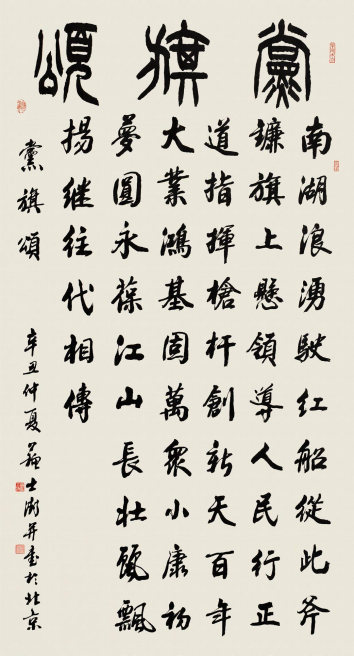 黨旗頌
南湖浪湧駛紅船從此斧
鐮旗上懸領導人民行正
道指揮槍杆創新天百年
大業鴻基固萬眾小康初
夢圓永葆江山長壯甌飄
揚繼往代相傳
黨旗頌 辛丑仲夏蘇士澍并書於北京